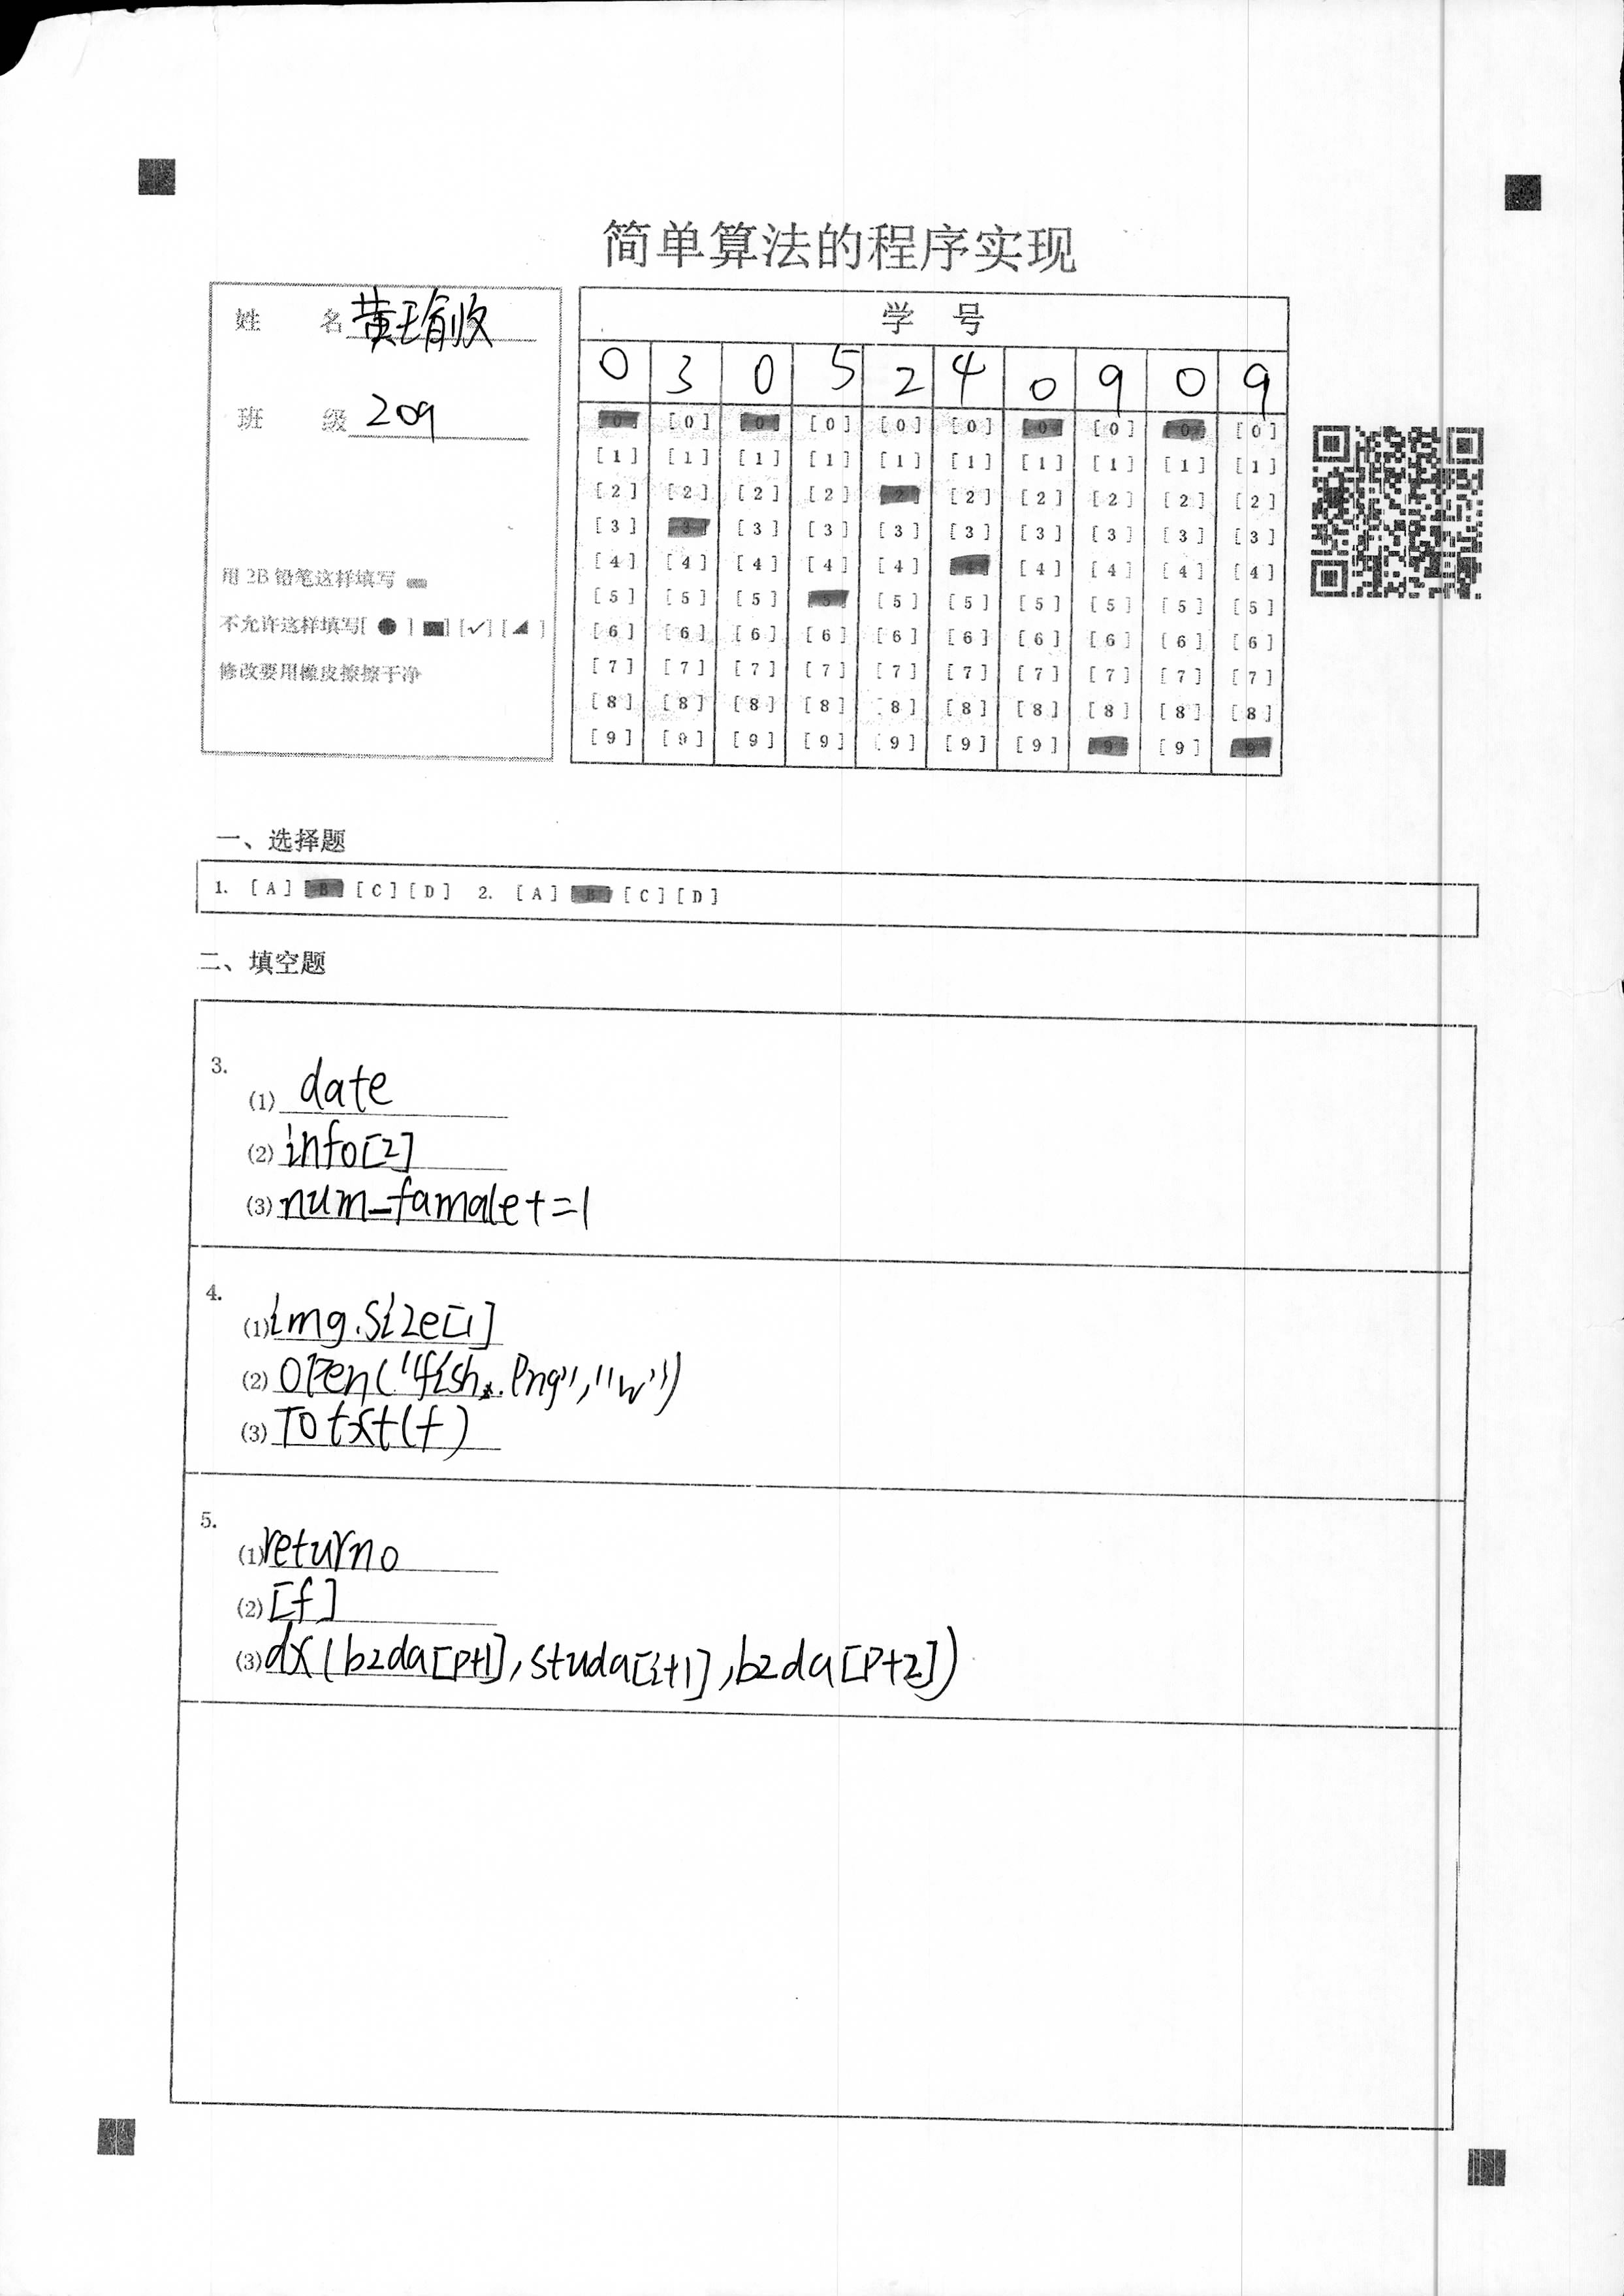 简单算法的程序实现
姓 名 黄瑜
班 级 209
用 2B 铅笔这样填写
不允许这样填写[ ● ] [■] [✓] [◢ ]
修改要用橡皮擦擦干净
学 号
0 3 0 5 2 4 0 9 0 9
[0] [0] [0] [0] [0] [0] [0] [0] [0] [0]
[1] [1] [1] [1] [1] [1] [1] [1] [1] [1]
[2] [2] [2] [2] [2] [2] [2] [2] [2] [2]
[3] [3] [3] [3] [3] [3] [3] [3] [3] [3]
[4] [4] [4] [4] [4] [4] [4] [4] [4] [4]
[5] [5] [5] [5] [5] [5] [5] [5] [5] [5]
[6] [6] [6] [6] [6] [6] [6] [6] [6] [6]
[7] [7] [7] [7] [7] [7] [7] [7] [7] [7]
[8] [8] [8] [8] [8] [8] [8] [8] [8] [8]
[9] [9] [9] [9] [9] [9] [9] [9] [9] [9]
一、选择题
1. [A] [B] [C] [D] 2. [A] [B] [C] [D]
二、填空题
3.
(1) date
(2) info[2]
(3) num_famale+=1
4.
(1) img.size[1]
(2) open("fish.png","w")
(3) Totxt(f)
5.
(1) return0
(2) [f]
(3) dx(bzda[p+1],studa[i+1],bzda[p+2])